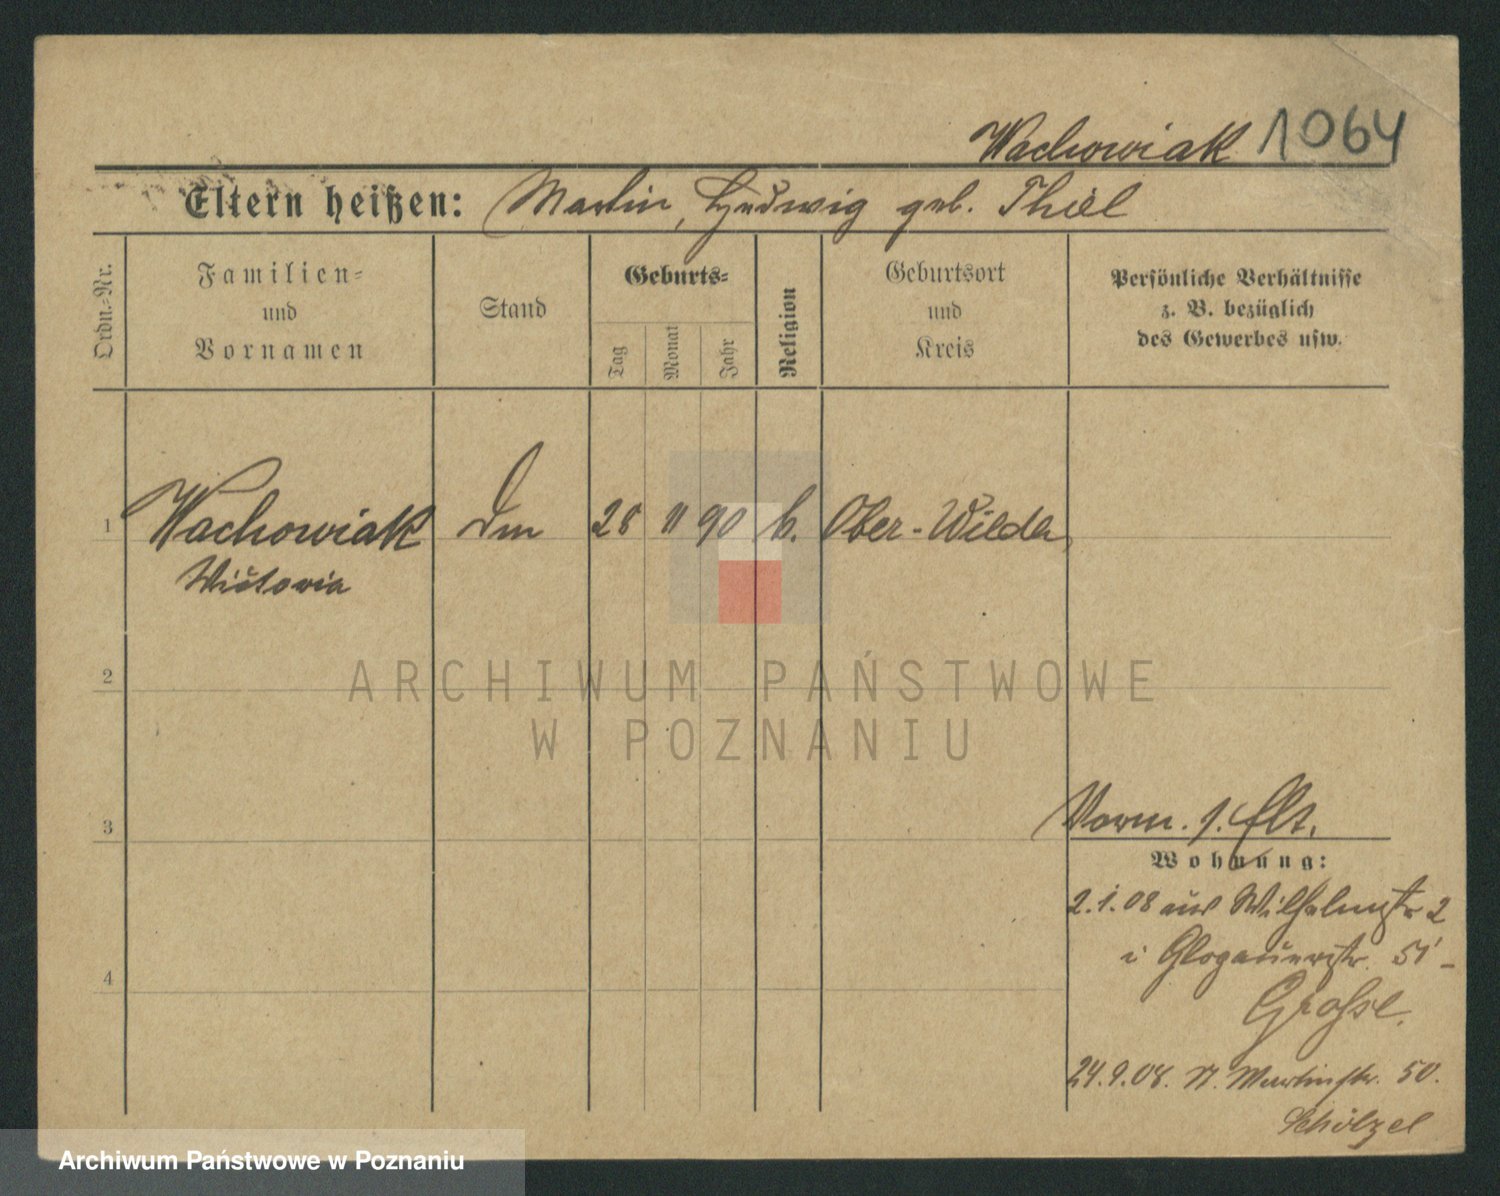 Wachowiak 1064
Eltern heißen: Martin, Hedwig geb. Thiel
Ordn.-Nr.
Familien-
und
Vornamen
Stand
Geburts-
Tag
Monat
Jahr
Religion
Geburtsort
und
Kreis
Persönliche Verhältnisse
z. B. bezüglich
des Gewerbes usw.
1 Wachowiak 28 11 90 k. Ober-Wilda,
Victoria
2
ARCHIWUM PAŃSTWOWE
W POZNANIU
3
Vorm. s. Elt.
Wohnung:
2.1.08 aus Wilhelmstr 2
i Glogauerstr. 51
Grosse.
24.9.08. St. Martinstr. 50.
Schölzel
4
Archiwum Państwowe w Poznaniu